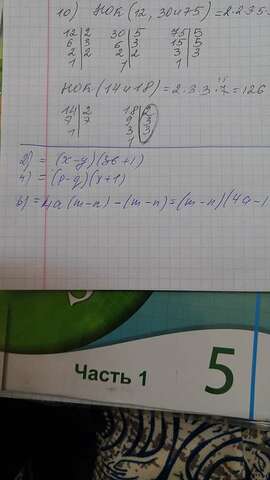 10) НОК (12, 30 и 75) = 2·2·3·5·
12|2 30|5 75|5
6|3 6|3 15|5
2|2 2|2 3|3
1| 1| 1|
НОК (14 и 18) = 2·3·3·7 = 126
14|2 18|2
7|7 9|3
1| 3|3
1|
2) = (x-y)(8b+1)
4) = (p-q)(y+1)
6) = 4a(m-n)-(m-n)=(m-n)(4a-1
Часть 1
5